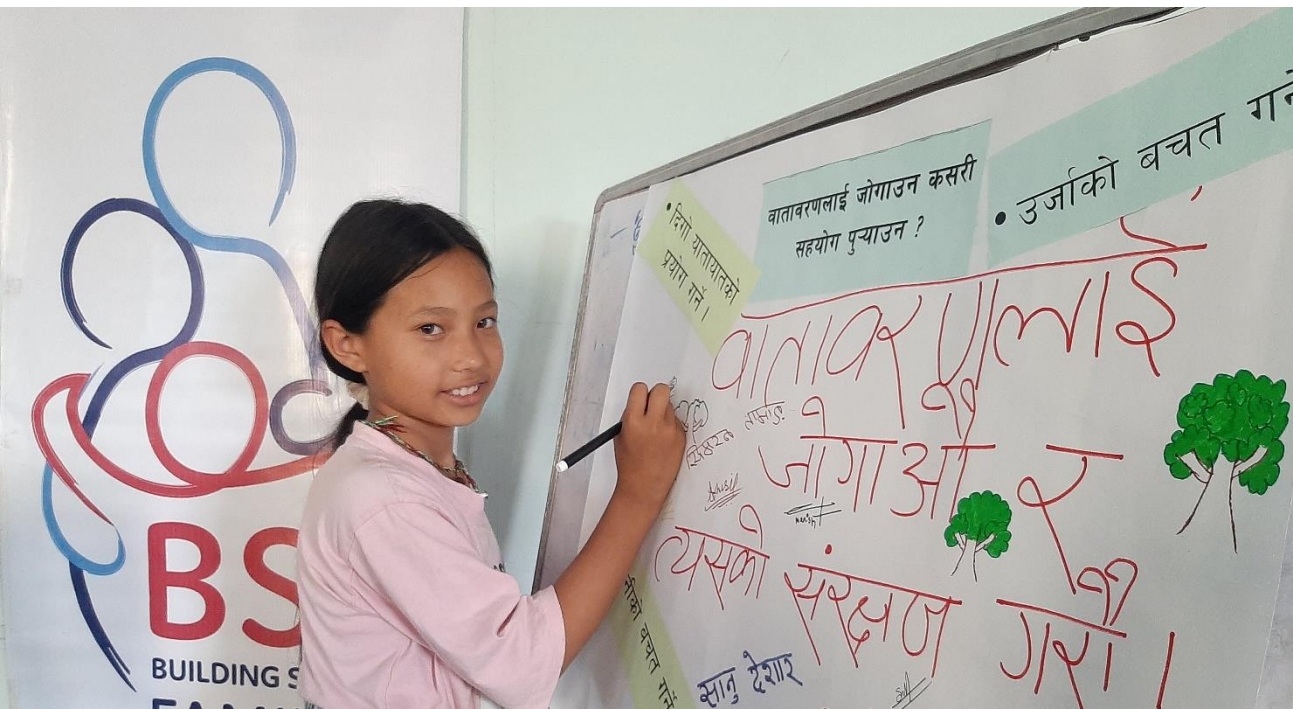 BS
BUILDING S
• दिगो यातायातको
प्रयोग गर्ने ।
वातावरणलाई जोगाउन कसरी
सहयोग पुऱ्याउन ?
• उर्जाको बचत गर्ने
वातावरणलाई
जोगाऔं र
त्यसको संरक्षण गरौं ।
सानु देशार